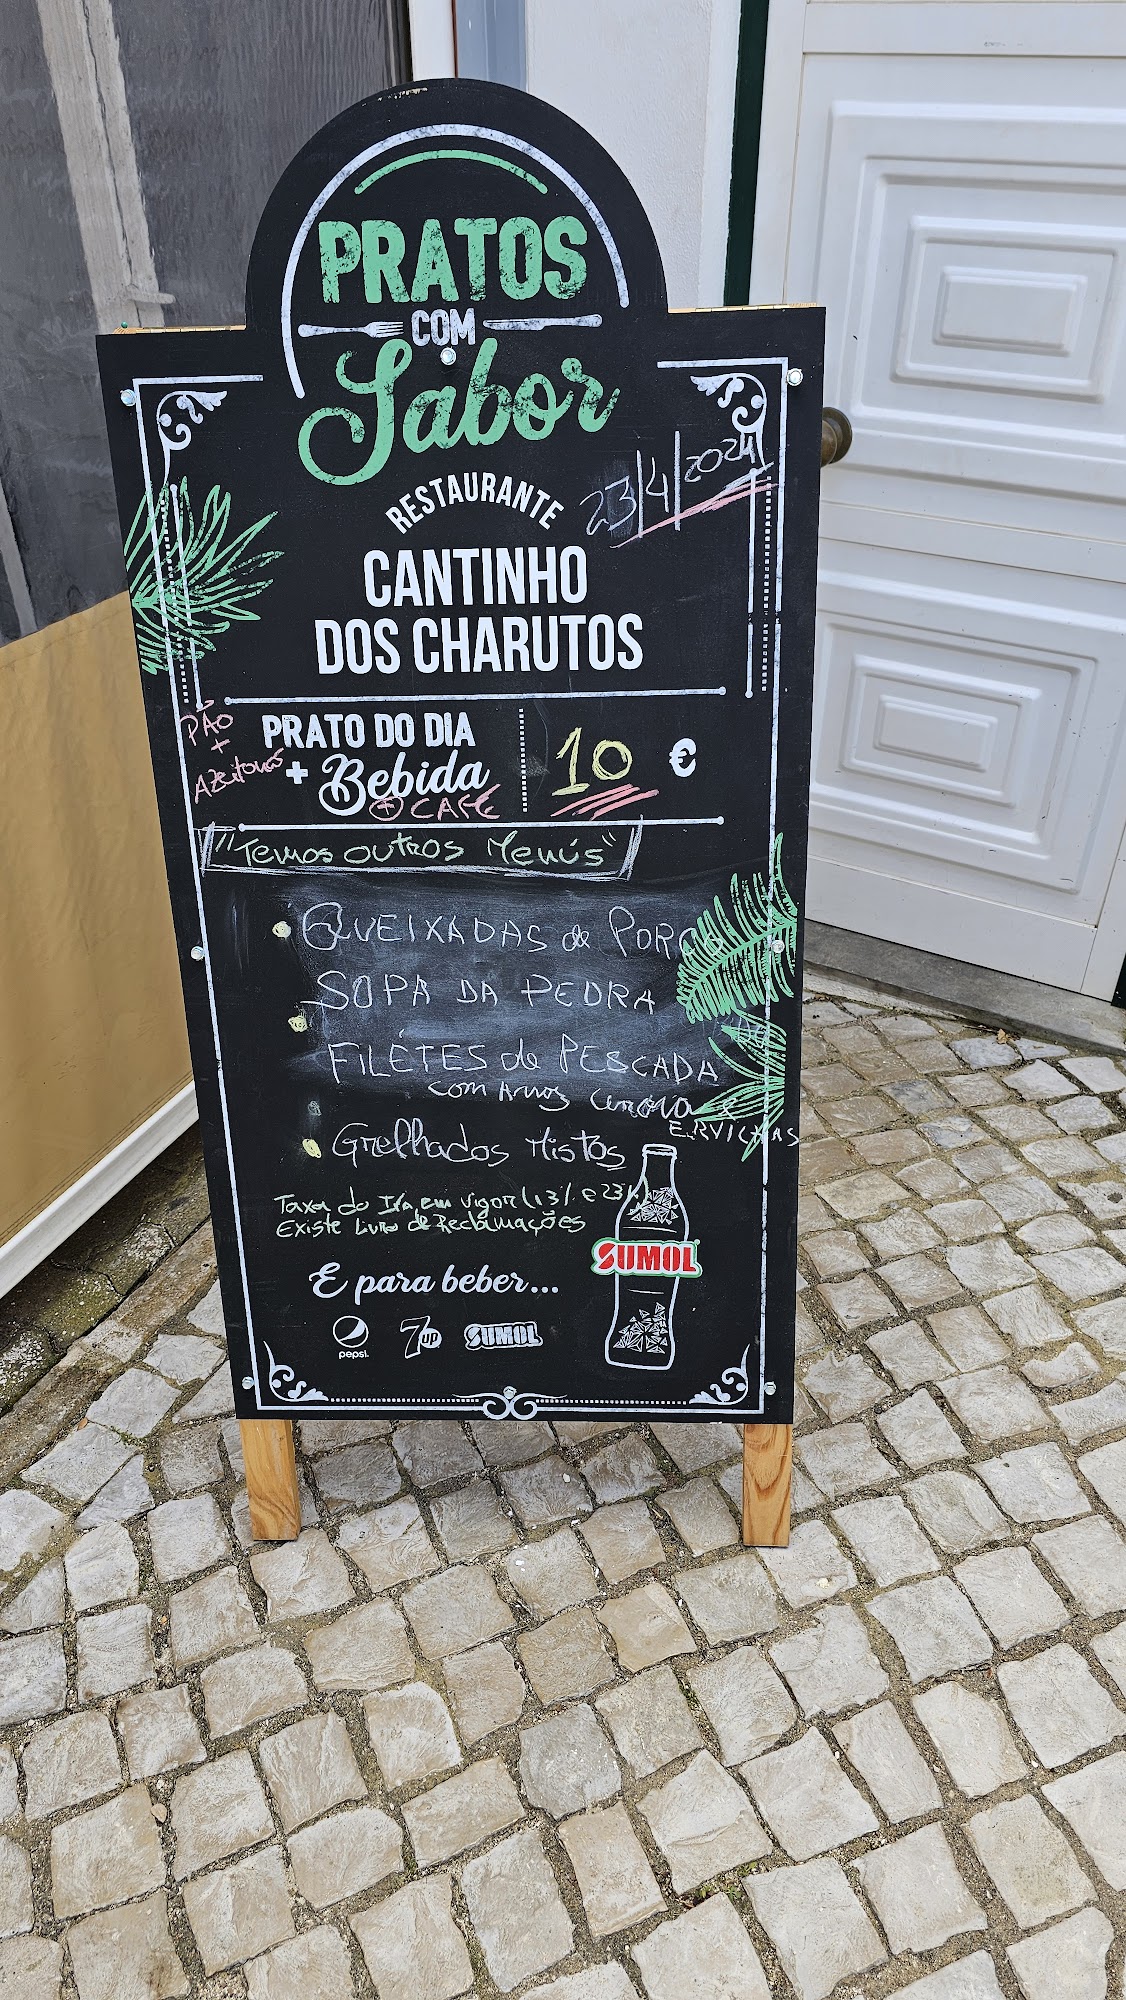 PRATOS
COM
Sabor
23/4/2024
RESTAURANTE
CANTINHO
DOS CHARUTOS
PÃO
+
AZEITONAS
PRATO DO DIA
+ Bebida
+ CAFÉ
10 €
"Temos outros Menús"
QUEIXADAS de PORCO
SOPA DA PEDRA
FILÉTES de PESCADA
com Arroz Cenoura e
ERVILHAS
Grelhados Mistos
Taxa do Iva em vigor (13% e 23%
Existe Livro de Reclamações
SUMOL
E para beber...
pepsi.
7up
SUMOL